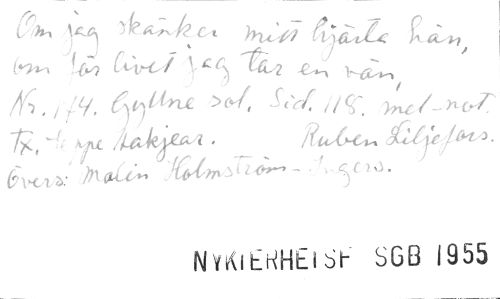 Om jag skänker mitt hjärta hän,
om för livet jag tar en vän,
Nr. 174. Gyllne sol. Sid. 118. mel-not.
Tx. Jeppe Aakjear. Ruben Liljefors.
Övers: Malin Holmström-Ingers.
NYKTERHETSF SGB 1955